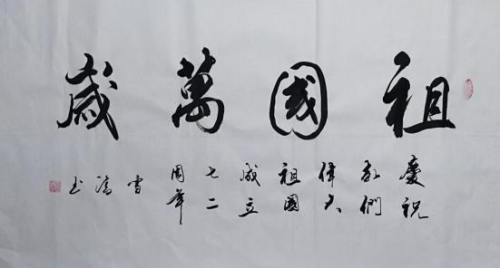 祖國萬歲
慶祝
我們
偉大
祖國
成立
七二
周年
书